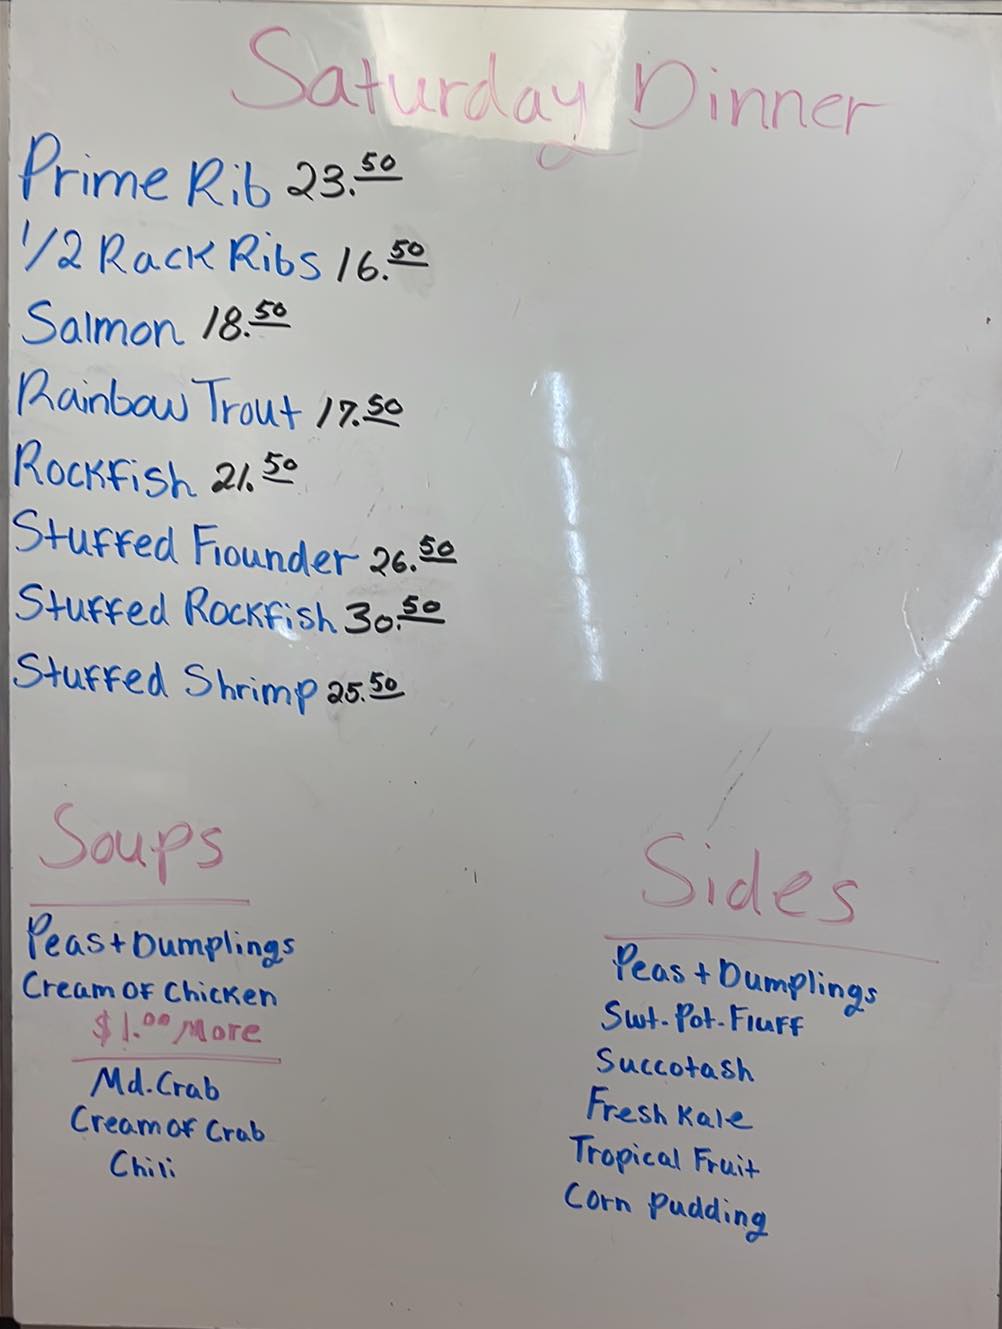 Saturday Dinner
Prime Rib 23.50
1/2 Rack Ribs 16.50
Salmon 18.50
Rainbow Trout 17.50
Rockfish 21.50
Stuffed Flounder 26.50
Stuffed Rockfish 30.50
Stuffed Shrimp 25.50
Soups
Peas + Dumplings
Cream of Chicken
$1.00 More
Md. Crab
Cream of Crab
Chili
Sides
Peas + Dumplings
Swt. Pot. Fluff
Succotash
Fresh Kale
Tropical Fruit
Corn Pudding